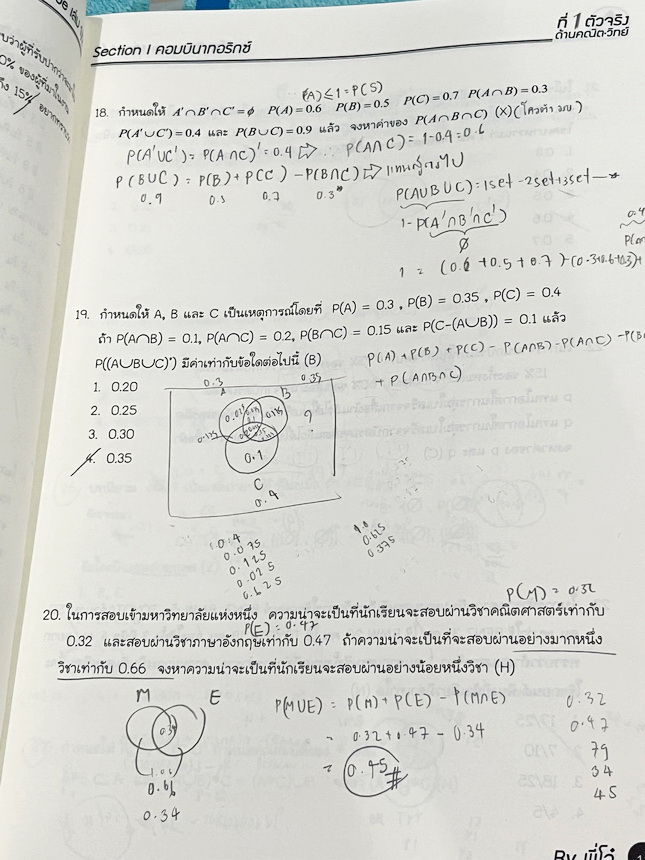 Section I คอมบินาทอริกซ์
ที่ 1 ตัวจริง
ด้านคณิต-วิทย์
0% ของผู้ที่มาในงาน
ถึง 15%
P(A) ≤ 1 = P(S)
18. กำหนดให้ A'∩B'∩C'=ϕ P(A)=0.6 P(B)=0.5 P(C)=0.7 P(A∩B)=0.3
P(A'∪C')=0.4 และ P(B∪C)=0.9 แล้ว จงหาค่าของ P(A∩B∩C) (X)
P(A'∪C') = P(A∩C)' = 0.4 ⇒ ∴ P(A∩C) = 1-0.4 = 0.6
P(B∪C) = P(B) + P(C) - P(B∩C) ⇒
0.9 0.5 0.7 0.3
P(A∪B∪C) = 1set - 2set + 3set
1 - P(A'∩B'∩C')
ϕ
1 = (0.6 + 0.5 + 0.7) - (0.3+0.6+0.3) +
19. กำหนดให้ A, B และ C เป็นเหตุการณ์โดยที่ P(A) = 0.3 , P(B) = 0.35 , P(C) = 0.4
ถ้า P(A∩B) = 0.1, P(A∩C) = 0.2, P(B∩C) = 0.15 และ P(C-(A∪B)) = 0.1 แล้ว
P((A∪B∪C)') มีค่าเท่ากับข้อใดต่อไปนี้ (B)
P(A) + P(B) + P(C) - P(A∩B) - P(A∩C) - P(B
+ P(A∩B∩C)
1. 0.20
2. 0.25
3. 0.30
4. 0.35
0.3 0.35
A B
?
0.1
C
0.4
0.4
0.075
0.125
0.025
0.625
1.0
0.625
0.375
P(M) = 0.32
20. ในการสอบเข้ามหาวิทยาลัยแห่งหนึ่ง ความน่าจะเป็นที่นักเรียนจะสอบผ่านวิชาคณิตศาสตร์เท่ากับ
P(E) = 0.47
0.32 และสอบผ่านวิชาภาษาอังกฤษเท่ากับ 0.47 ถ้าความน่าจะเป็นที่จะสอบผ่านอย่างมากหนึ่ง
วิชาเท่ากับ 0.66 จงหาความน่าจะเป็นที่นักเรียนจะสอบผ่านอย่างน้อยหนึ่งวิชา (H)
M E
0.34
0.66
0.34
P(M∪E) = P(M) + P(E) - P(M∩E)
= 0.32 + 0.47 - 0.34
= 0.45 #
0.32
0.47
79
34
45
By พี่โอ๋